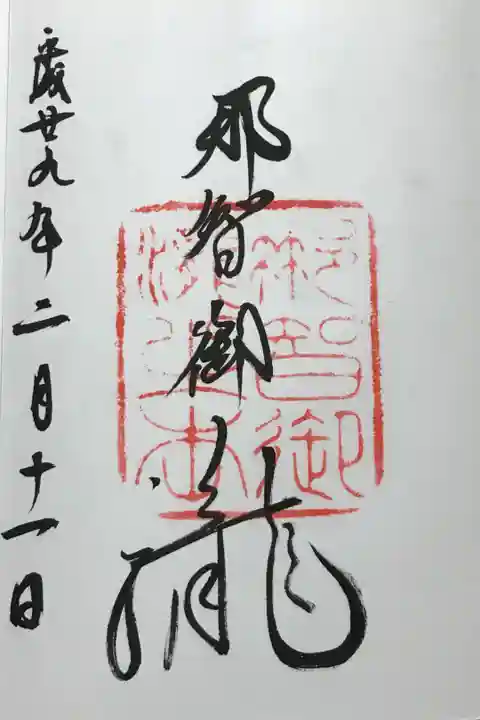 那智御瀧
平成廿九年二月十一日
那智御
瀧之